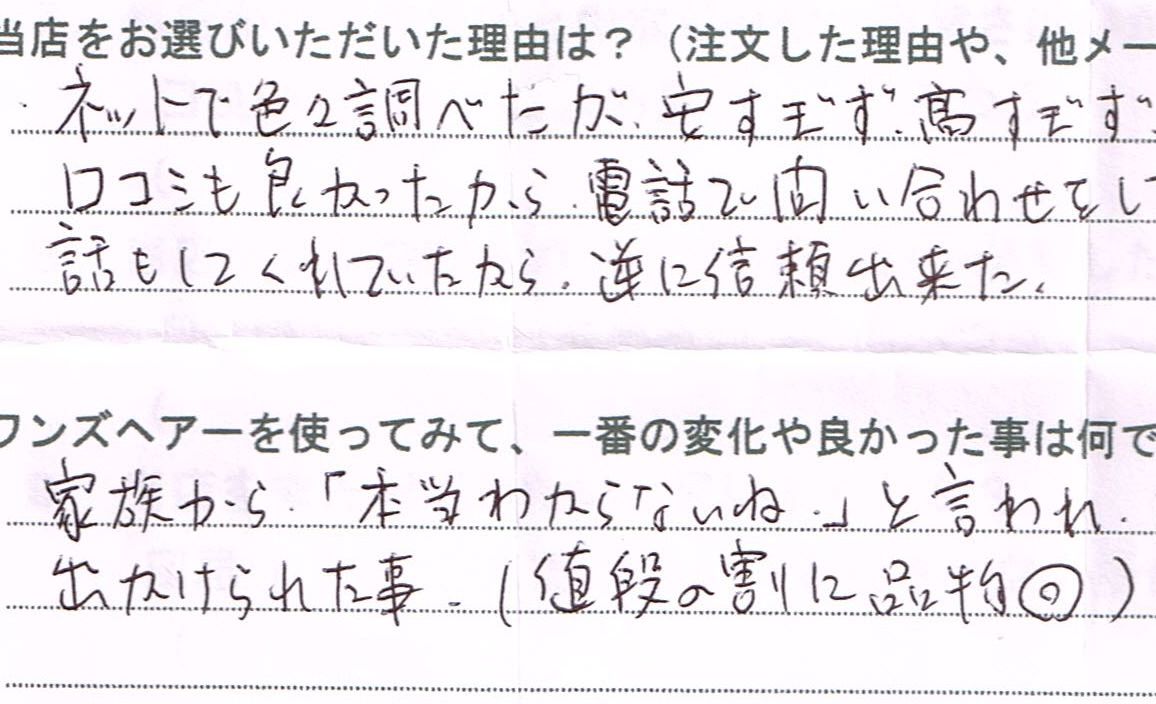 当店をお選びいただいた理由は？（注文した理由や、他メー
・ネットで色々調べたが、安すぎず、高すぎず、
口コミも良かったから、電話で問い合わせをし
話もしてくれていたから、逆に信頼出来た。
ワンズヘアーを使ってみて、一番の変化や良かった事は何で
家族から、「本当わからないね。」と言われ、
出かけられた事。（値段の割に品物◎）